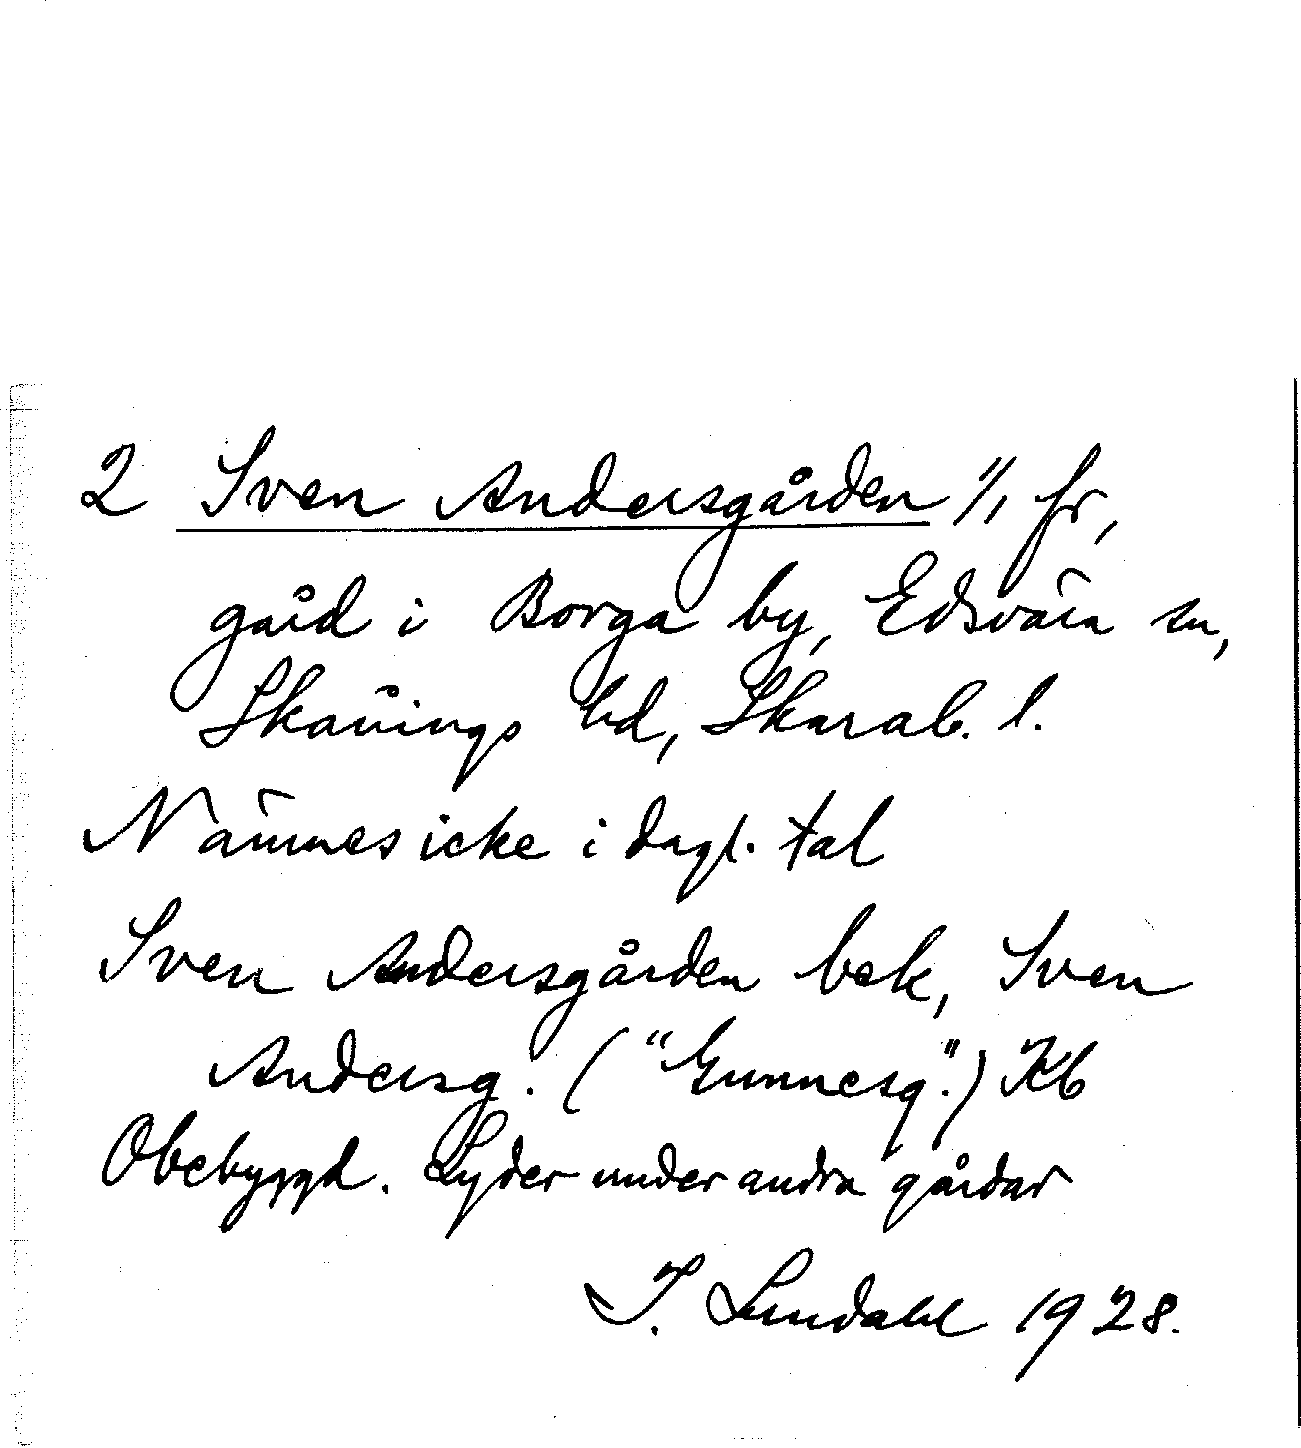 2 Sven Andersgården 1/1 fr,
gård i Borga by, Edsvära sn,
Skånings hd, Skarab. l.
Nämnes icke i dagl. tal
Sven Andersgården bek, Sven
Andersg. ("Gunnesg".) Kb
Obebyggd. Lyder under andra gårdar
I. Lundahl 1928.